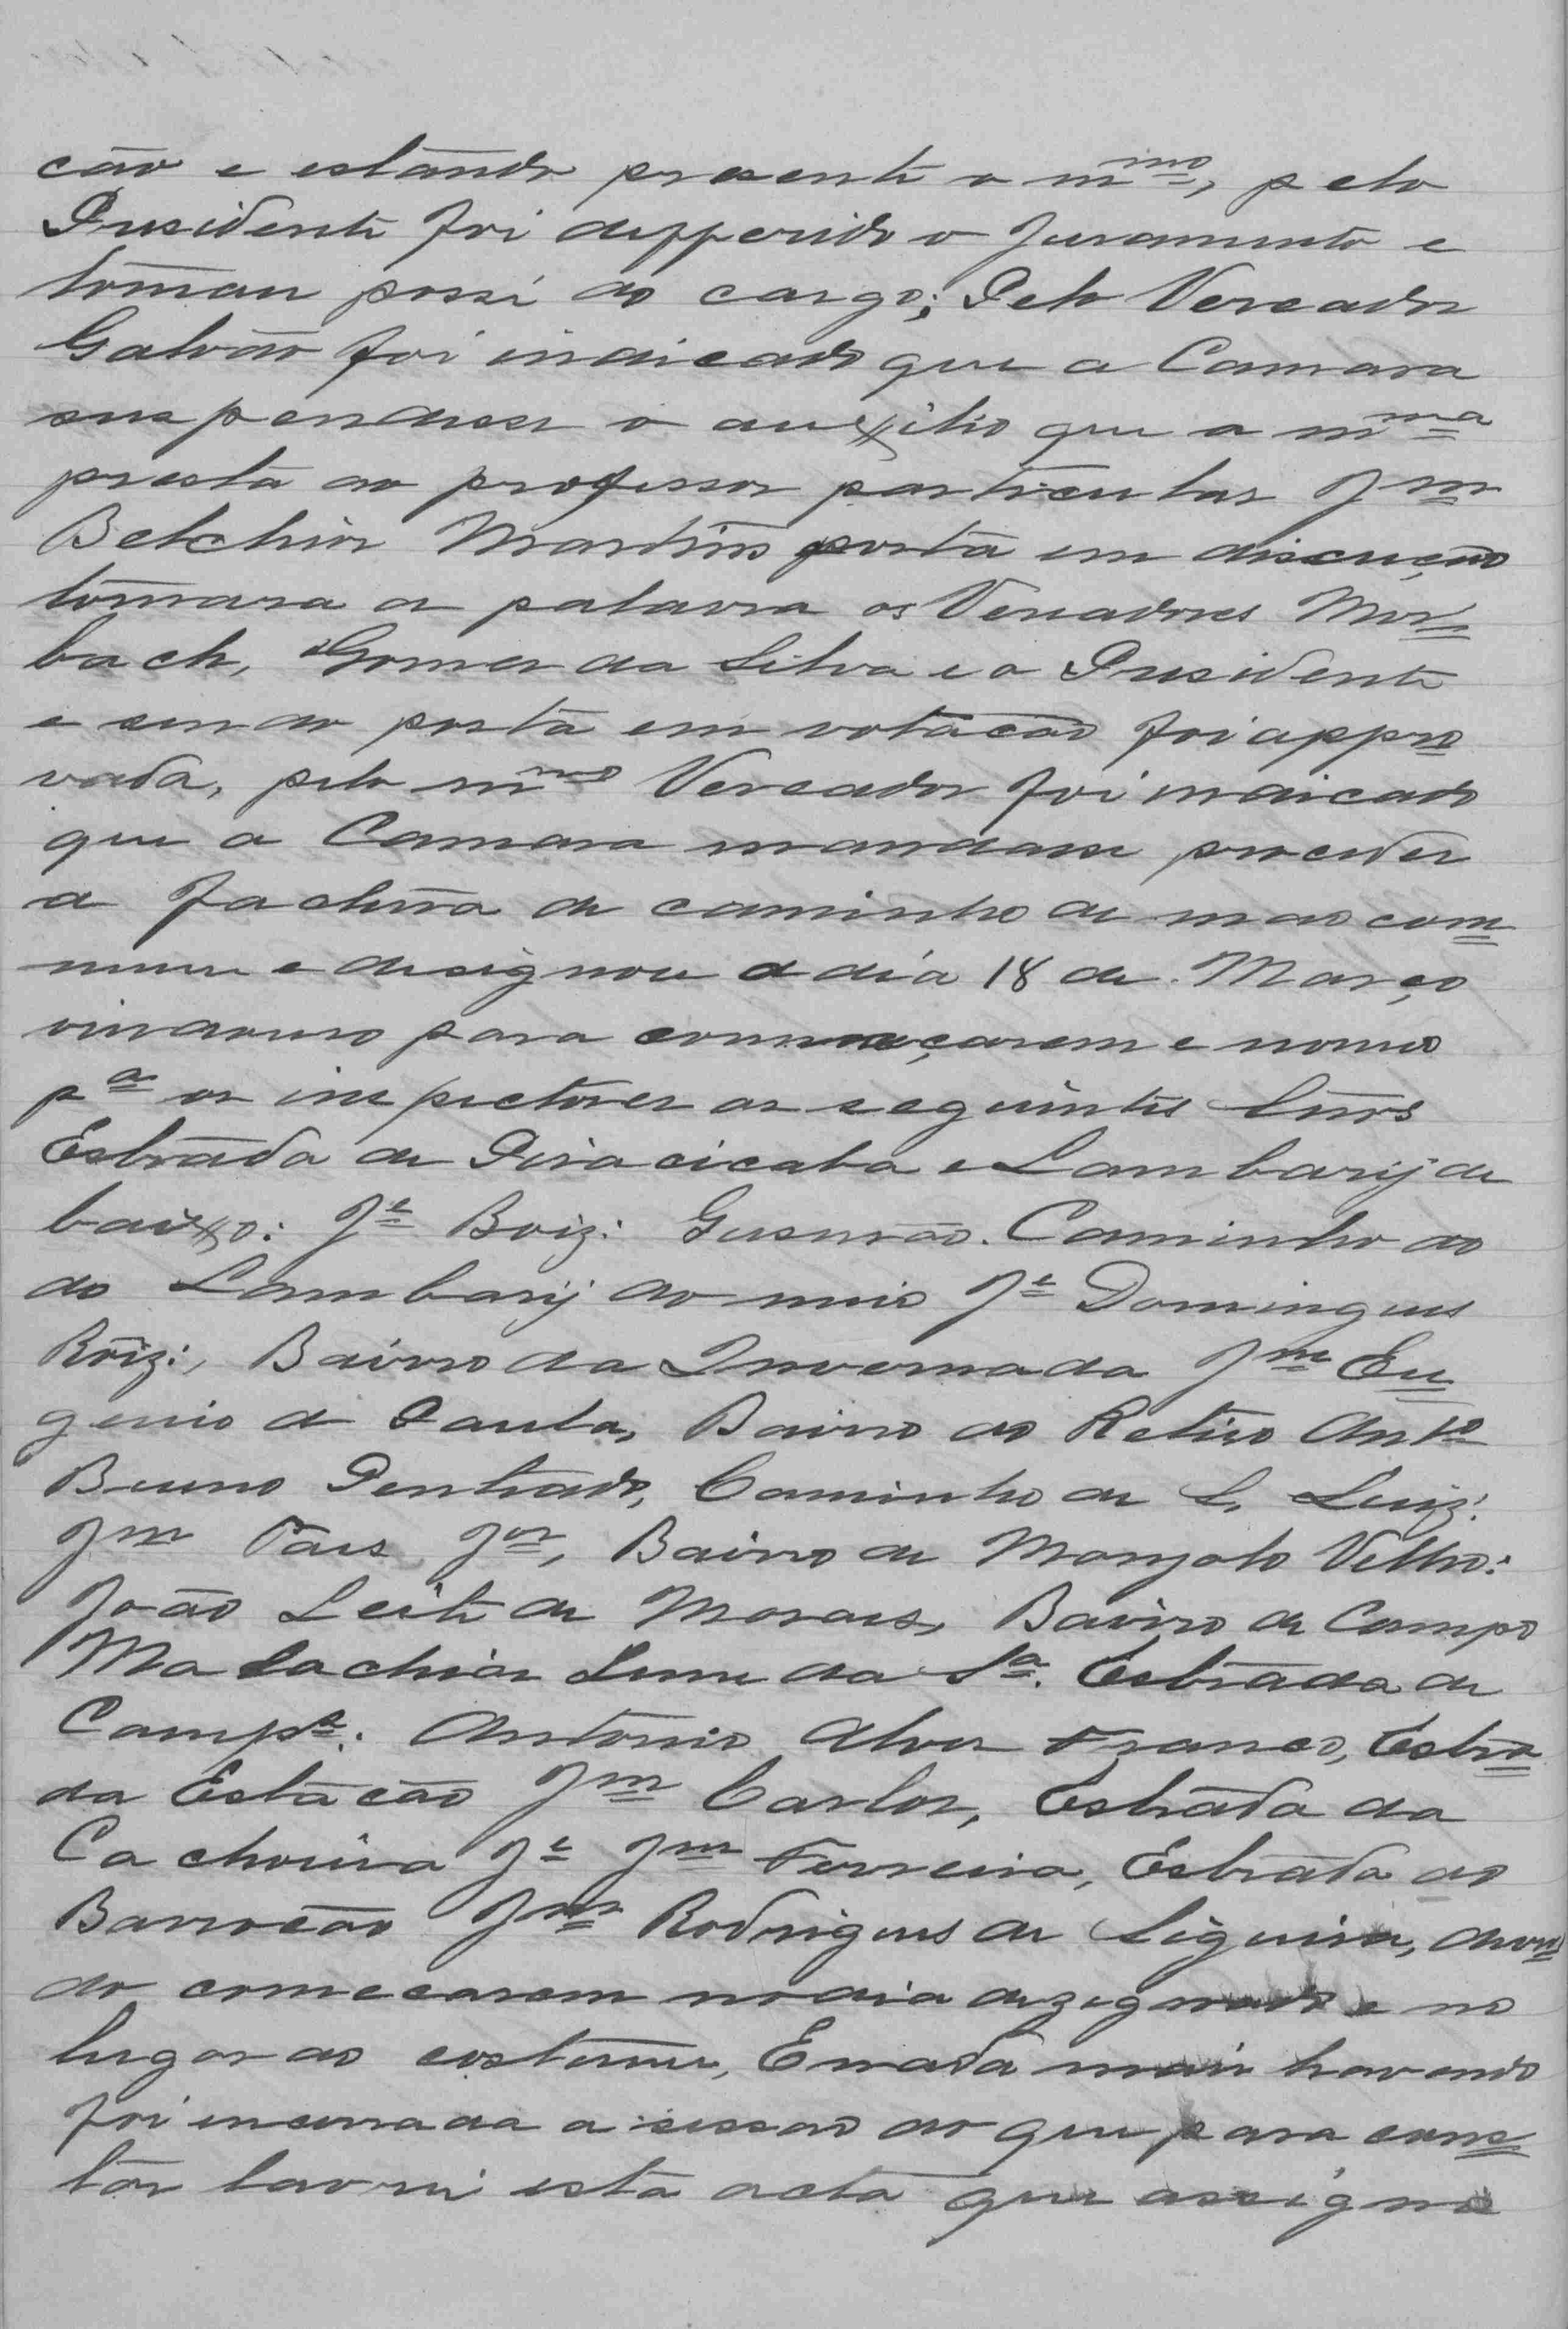 ção e estando presente o m.mo, pelo
Presidente foi defferido o juramento e
tomou posse do cargo; Pelo Vereador
Galvão foi indicado que a Camara
suspendesse o auxilio que a m.ma
presta ao professor particular Jm
Belchior Martins posta em discução
tomara a palavra os Vereadores Mor=
bach, Gomes da Silva e o Presidente
e sendo posta em votação foi appro
vada, pelo m.mo Vereador foi indicado
que a Camara mandasse proceder
a factura de caminho de mão com=
mum e designou o dia 18 de Março
vindouro para começarem e nomeo
pa os inspectores os seguintes Snrs
Estrada de Piracicaba e Lambarij de
baixo: Je Roiz: Gusmão. Caminho do
do Lambarij do meio Je Domingues
Roiz:, Bairro da Invernada Jm Eu=
genio de Paula, Bairro do Retiro Anto
Bueno Penteado, Caminho de S. Luiz:
Jm Paes Jor, Bairro de Monjolo Velho:
João Leite de Moraes, Bairro de Campo
Malachias Leme da Sa. Estrada de
Camps: Antonio Alves Franco, Estra=
da Estação Jm Carlos, Estrada da
Cachoeira Je Jm Ferreira, Estrada do
Barrocão Jm Rodrigues de Siqueira, deven=
do começarem no dia dezegnado e no
lugar do costume, E nada mais havendo
foi encerrada a sessão do que para cons=
tar lavrei esta acta que assigno